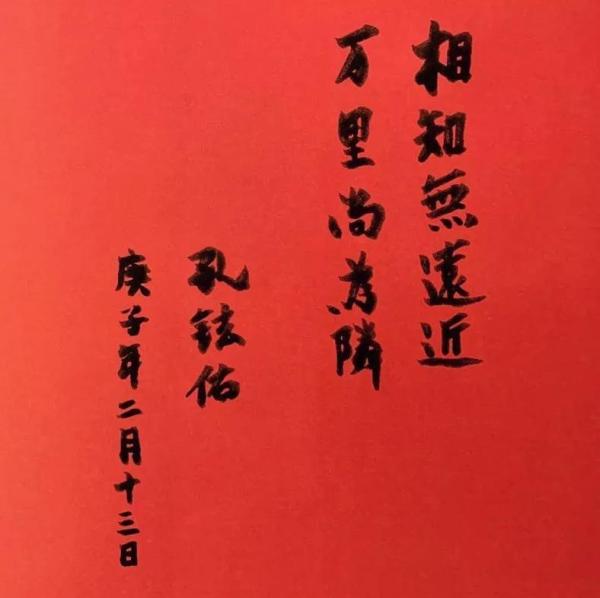 相知無遠近
万里尚为隣
孔鉉佑
庚子年二月十三日